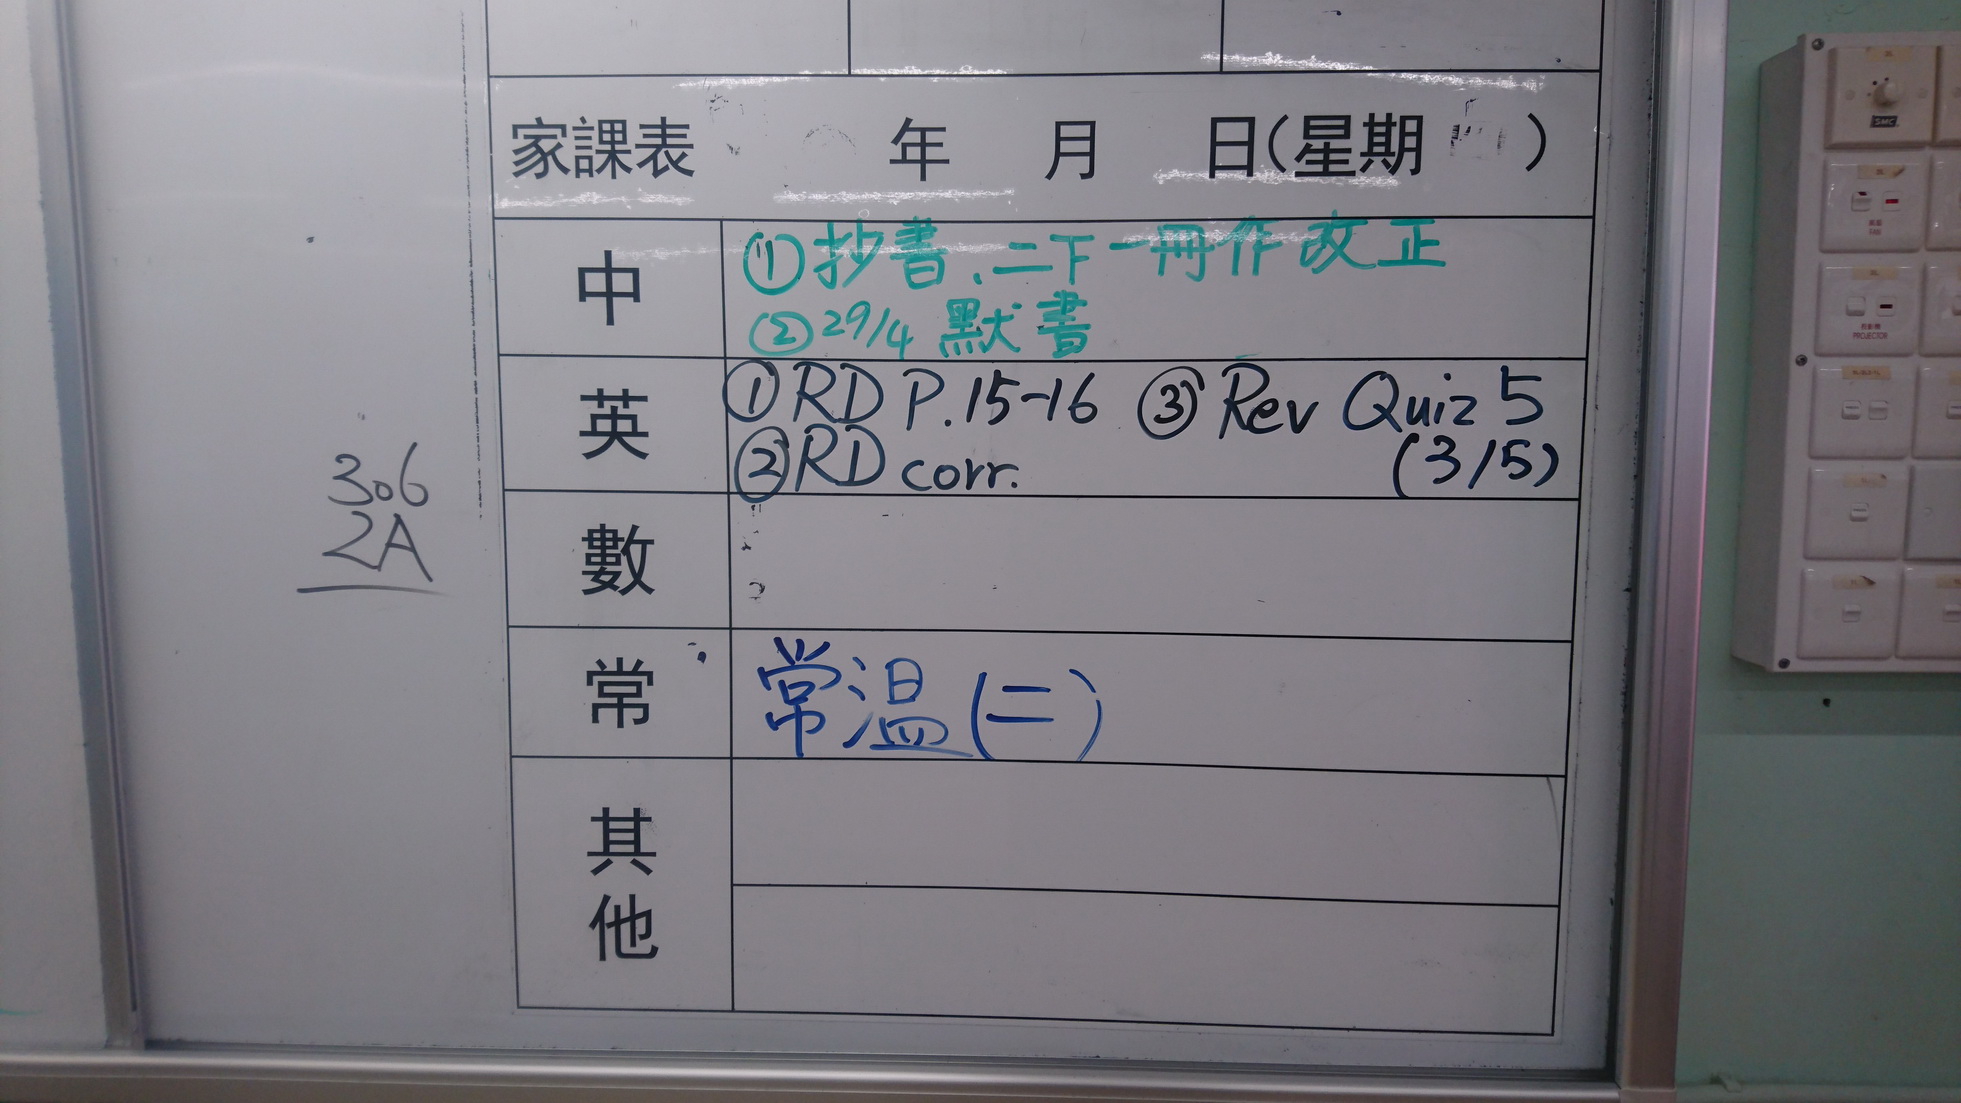 家課表 年 月 日(星期 )
中
①抄書、二下一冊作改正
②29/4 默書
英
①RD P.15-16 ③Rev Quiz 5
②RD corr. (3/5)
306
2A
數
常
常溫(二)
其他
SMC
PROJECTOR